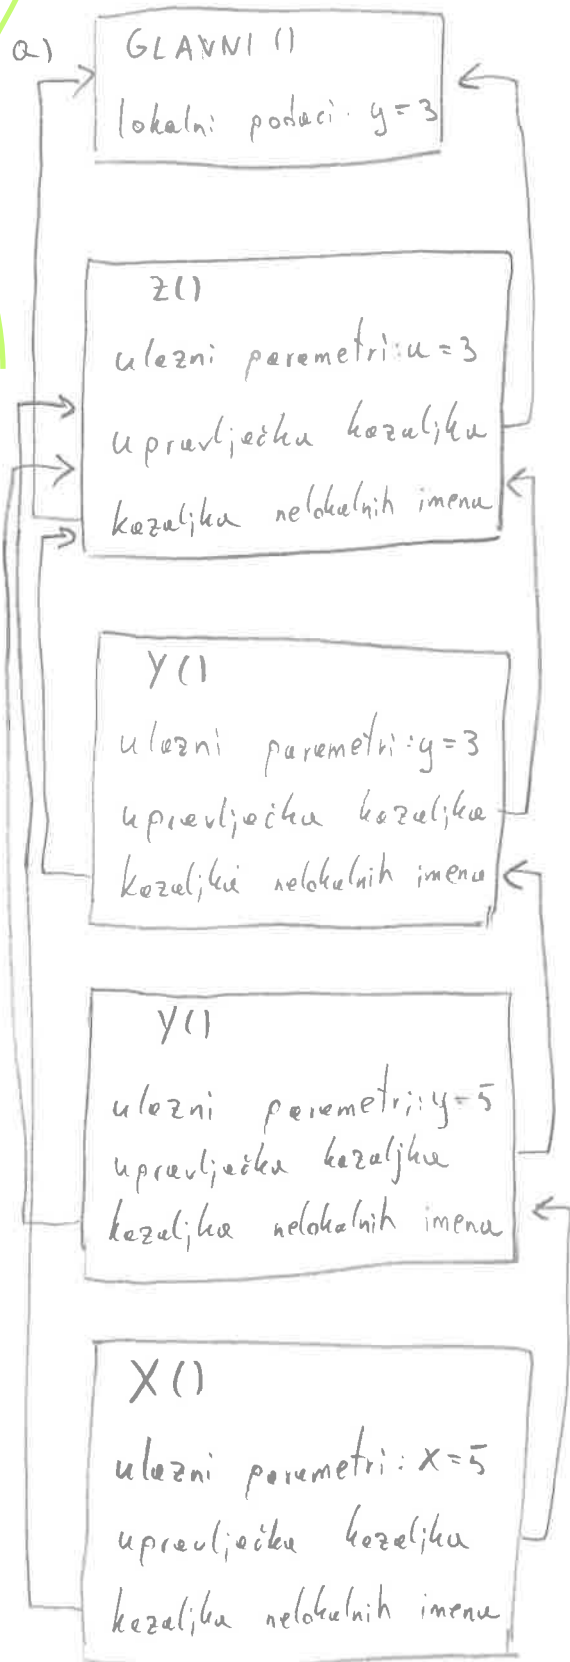 a)
GLAVNI ()
lokalni podaci: y = 3
Z()
ulazni parametri: u = 3
upravljačka kazaljka
kazaljka nelokalnih imena
Y()
ulazni parametri: y = 3
upravljačka kazaljka
kazaljka nelokalnih imena
Y()
ulazni parametri: y = 5
upravljačka kazaljka
kazaljka nelokalnih imena
X()
ulazni parametri: x = 5
upravljačka kazaljka
kazaljka nelokalnih imena